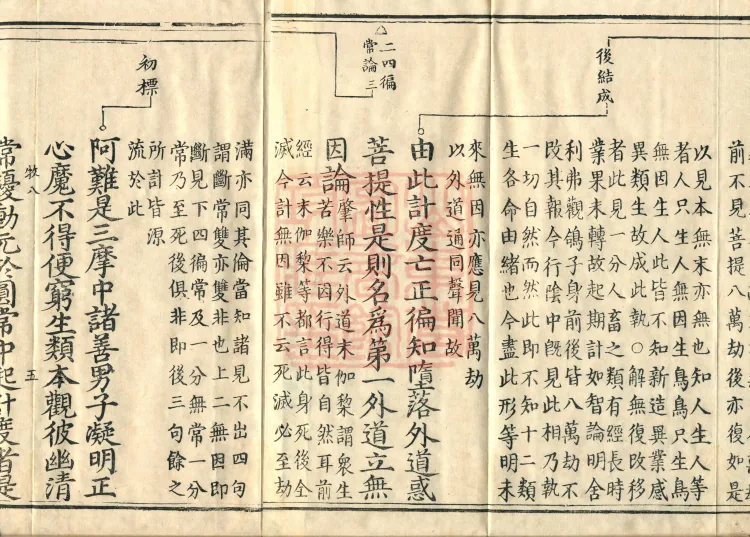 前不見菩提八萬劫後亦復如是
後結成
以見本無末亦無也知人生人等
者人只生人無因生鳥鳥只生鳥
無因生人此皆不知新造異業感
異類生故成此執○解無復改移
者此見一分人畜之類有經長時
業果未轉故起期計如智論明舍
利弗觀鴿子身前後皆八萬劫不
改其報今行陰中旣見此相乃執
一切自然而然此即不知十二類
生各命由緒也今盡此形等明未
來無因亦應見八萬劫
以外道通同聲聞故
由此計度亡正徧知墮落外道惑
菩提性是則名爲第一外道立無
因論
肇師云外道末伽黎謂衆生
苦樂不因行得皆自然耳前
經云末伽黎等都言此身死後全
滅今計無因雖不云死滅必至劫
二四徧
常論三
滿亦同其倫當知諸見不出四句
謂斷常雙亦雙非也上二無因即
斷見下四徧常及一分無常一分
常乃至死後俱非即後三句餘之
所計皆源
流於此
初標
阿難是三摩中諸善男子凝明正
心魔不得便窮生類本觀彼幽清
牧八
五
常擾動元於圓常中起計度者是